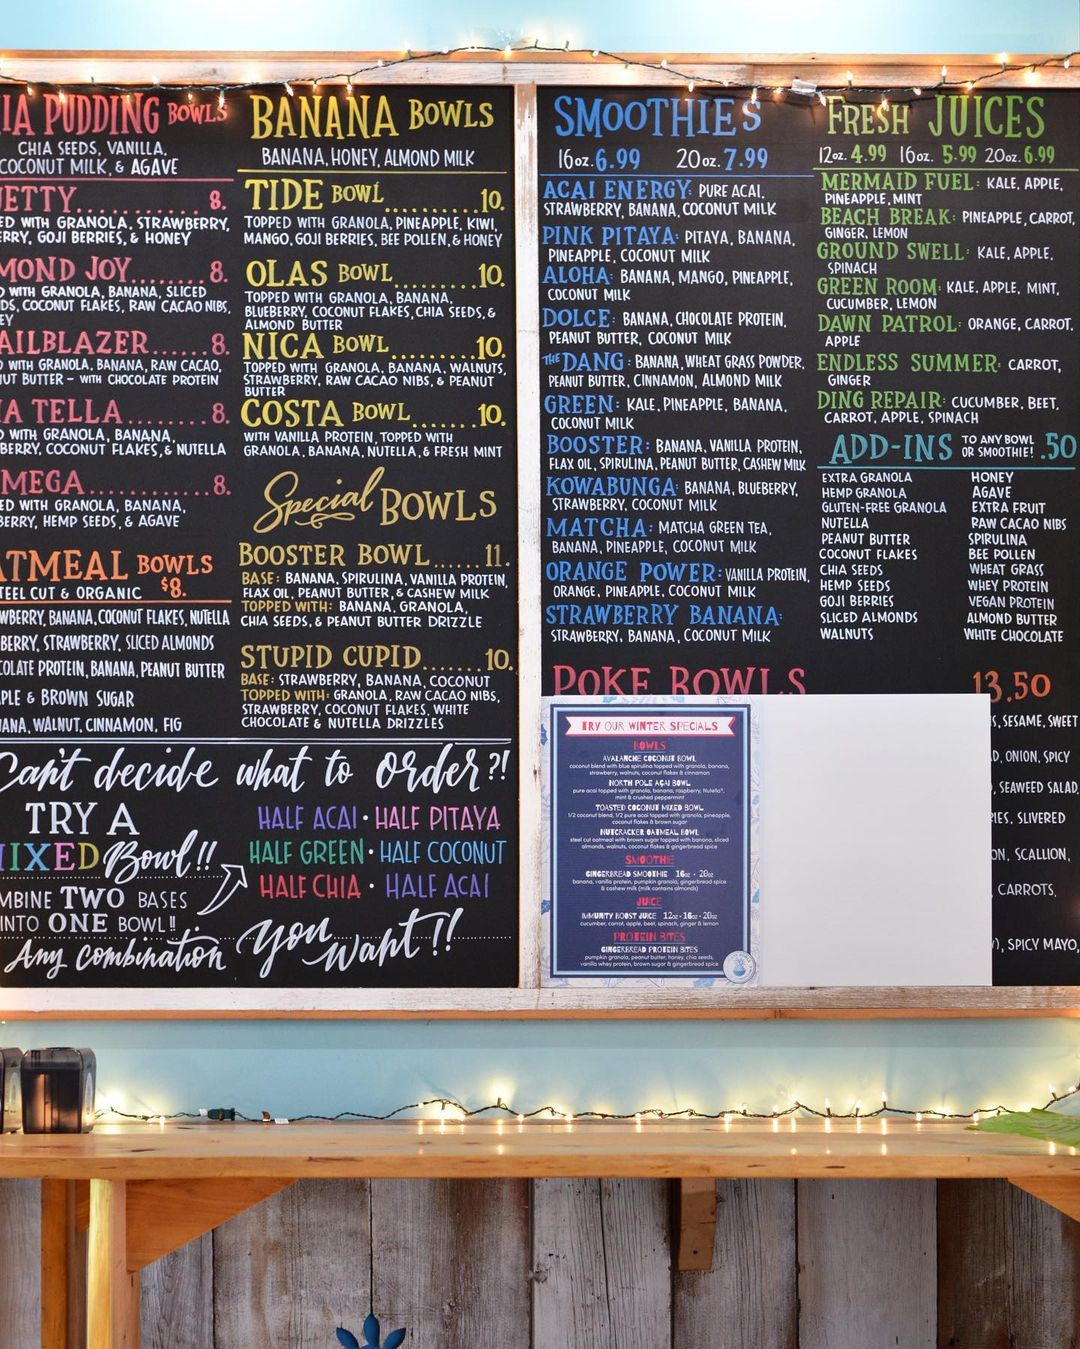 PUDDING BOWLS
CHIA SEEDS, VANILLA,
COCONUT MILK, & AGAVE
JETTY........8.
GRANOLA, STRAWBERRY,
GOJI BERRIES, & HONEY
JOY.......8.
WITH GRANOLA, BANANA, SLICED
COCONUT FLAKES, RAW CACAO NIBS,
8.
WITH GRANOLA, BANANA, RAW CACAO,
BUTTER - WITH CHOCOLATE PROTEIN
TELLA......8.
WITH GRANOLA, BANANA,
COCONUT FLAKES, & NUTELLA
8.
WITH GRANOLA, BANANA,
HEMP SEEDS, & AGAVE
BOWLS
CUT & ORGANIC $8.
BANANA, COCONUT FLAKES, NUTELLA
STRAWBERRY, SLICED ALMONDS
PROTEIN, BANANA, PEANUT BUTTER
& BROWN SUGAR
WALNUT, CINNAMON, FIG
BANANA BOWLS
BANANA, HONEY, ALMOND MILK
TIDE BOWL..........10.
TOPPED WITH GRANOLA, PINEAPPLE, KIWI,
MANGO, GOJI BERRIES, BEE POLLEN, & HONEY
OLAS BOWL..........10.
TOPPED WITH GRANOLA, BANANA,
BLUEBERRY, COCONUT FLAKES, CHIA SEEDS, &
ALMOND BUTTER
NICA BOWL.........10.
TOPPED WITH GRANOLA, BANANA, WALNUTS,
STRAWBERRY, RAW CACAO NIBS, & PEANUT
BUTTER
COSTA BOWL.......10.
WITH VANILLA PROTEIN, TOPPED WITH
GRANOLA, BANANA, NUTELLA, & FRESH MINT
Special BOWLS
BOOSTER BOWL......11.
BASE: BANANA, SPIRULINA, VANILLA PROTEIN,
FLAX OIL, PEANUT BUTTER, & CASHEW MILK
TOPPED WITH: BANANA, GRANOLA,
CHIA SEEDS, & PEANUT BUTTER DRIZZLE
STUPID CUPID.......10.
BASE: STRAWBERRY, BANANA, COCONUT
TOPPED WITH: GRANOLA, RAW CACAO NIBS,
STRAWBERRY, COCONUT FLAKES, WHITE
CHOCOLATE & NUTELLA DRIZZLES
Can't decide what to order?!
TRY A
MIXED Bowl!!
COMBINE TWO BASES
INTO ONE BOWL!!
HALF ACAI • HALF PITAYA
HALF GREEN • HALF COCONUT
HALF CHIA • HALF ACAI
Any combination you want!!
SMOOTHIES
16oz. 6.99 20oz. 7.99
ACAI ENERGY: PURE ACAI,
STRAWBERRY, BANANA, COCONUT MILK
PINK PITAYA: PITAYA, BANANA,
PINEAPPLE, COCONUT MILK
ALOHA: BANANA, MANGO, PINEAPPLE,
COCONUT MILK
DOLCE: BANANA, CHOCOLATE PROTEIN,
PEANUT BUTTER, COCONUT MILK
THE DANG: BANANA, WHEAT GRASS POWDER,
PEANUT BUTTER, CINNAMON, ALMOND MILK
GREEN: KALE, PINEAPPLE, BANANA,
COCONUT MILK
BOOSTER: BANANA, VANILLA PROTEIN,
FLAX OIL, SPIRULINA, PEANUT BUTTER, CASHEW MILK
KOWABUNGA: BANANA, BLUEBERRY,
STRAWBERRY, COCONUT MILK
MATCHA: MATCHA GREEN TEA,
BANANA, PINEAPPLE, COCONUT MILK
ORANGE POWER: VANILLA PROTEIN,
ORANGE, PINEAPPLE, COCONUT MILK
STRAWBERRY BANANA:
STRAWBERRY, BANANA, COCONUT MILK
FRESH JUICES
12oz. 4.99 16oz. 5.99 20oz. 6.99
MERMAID FUEL: KALE, APPLE,
PINEAPPLE, MINT
BEACH BREAK: PINEAPPLE, CARROT,
GINGER, LEMON
GROUND SWELL: KALE, APPLE,
SPINACH
GREEN ROOM: KALE, APPLE, MINT,
CUCUMBER, LEMON
DAWN PATROL: ORANGE, CARROT,
APPLE
ENDLESS SUMMER: CARROT,
GINGER
DING REPAIR: CUCUMBER, BEET,
CARROT, APPLE, SPINACH
ADD-INS TO ANY BOWL OR SMOOTHIE! .50
EXTRA GRANOLA
HEMP GRANOLA
GLUTEN-FREE GRANOLA
NUTELLA
PEANUT BUTTER
COCONUT FLAKES
CHIA SEEDS
HEMP SEEDS
GOJI BERRIES
SLICED ALMONDS
WALNUTS
HONEY
AGAVE
EXTRA FRUIT
RAW CACAO NIBS
SPIRULINA
BEE POLLEN
WHEAT GRASS
WHEY PROTEIN
VEGAN PROTEIN
ALMOND BUTTER
WHITE CHOCOLATE
POKE BOWLS 13.50
SESAME, SWEET
ONION, SPICY
SEAWEED SALAD,
SLIVERED
SCALLION,
CARROTS,
SPICY MAYO,
TRY OUR WINTER SPECIALS
BOWLS
AVALANCHE COCONUT BOWL
coconut blend with blue spirulina topped with granola, banana,
strawberry, walnuts, coconut flakes & cinnamon
NORTH POLE AÇAI BOWL
pure acai topped with granola, banana, raspberry, Nutella®,
mint & crushed peppermint
TOASTED COCONUT MIXED BOWL
1/2 coconut blend, 1/2 pure acai topped with granola, pineapple,
coconut flakes & brown sugar
NUTCRACKER OATMEAL BOWL
steel cut oatmeal with brown sugar topped with banana, sliced
almonds, walnuts, coconut flakes & gingerbread spice
SMOOTHIE
GINGERBREAD SMOOTHIE 16oz • 20oz
banana, vanilla protein, pumpkin granola, gingerbread spice
& cashew milk (milk contains almonds)
JUICE
IMMUNITY BOOST JUICE 12oz • 16oz • 20oz
cucumber, carrot, apple, beet, spinach, ginger & lemon
PROTEIN BITES
GINGERBREAD PROTEIN BITES
pumpkin granola, peanut butter, honey, chia seeds,
vanilla whey protein, brown sugar & gingerbread spice